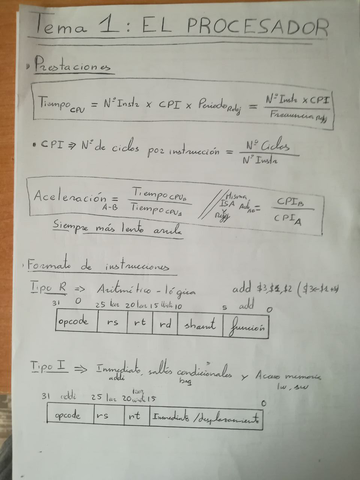 Tema 1: EL PROCESADOR
• Prestaciones
Tiempo CPU = Nº Instr x CPI x Periodo Reloj = Nº Instr x CPI / Frecuencia Reloj
• CPI ⇒ Nº de ciclos por instrucción = Nº Ciclos / Nº Instr
Aceleración A-B = Tiempo CPU / Tiempo CPU // Misma ISA Reloj = CPI B / CPI A
Siempre más lento arriba
• Formato de instrucciones
Tipo R ⇒ Aritmético-lógica add $3,$1,$2
31 0 25 20 15 5 add 0
opcode rs rt rd shamt función
Tipo I ⇒ Inmediato, saltos condicionales y Acceso memoria
addi beq lw, sw
31 addi 25 20 15 0
opcode rs rt Inmediato/desplazamiento